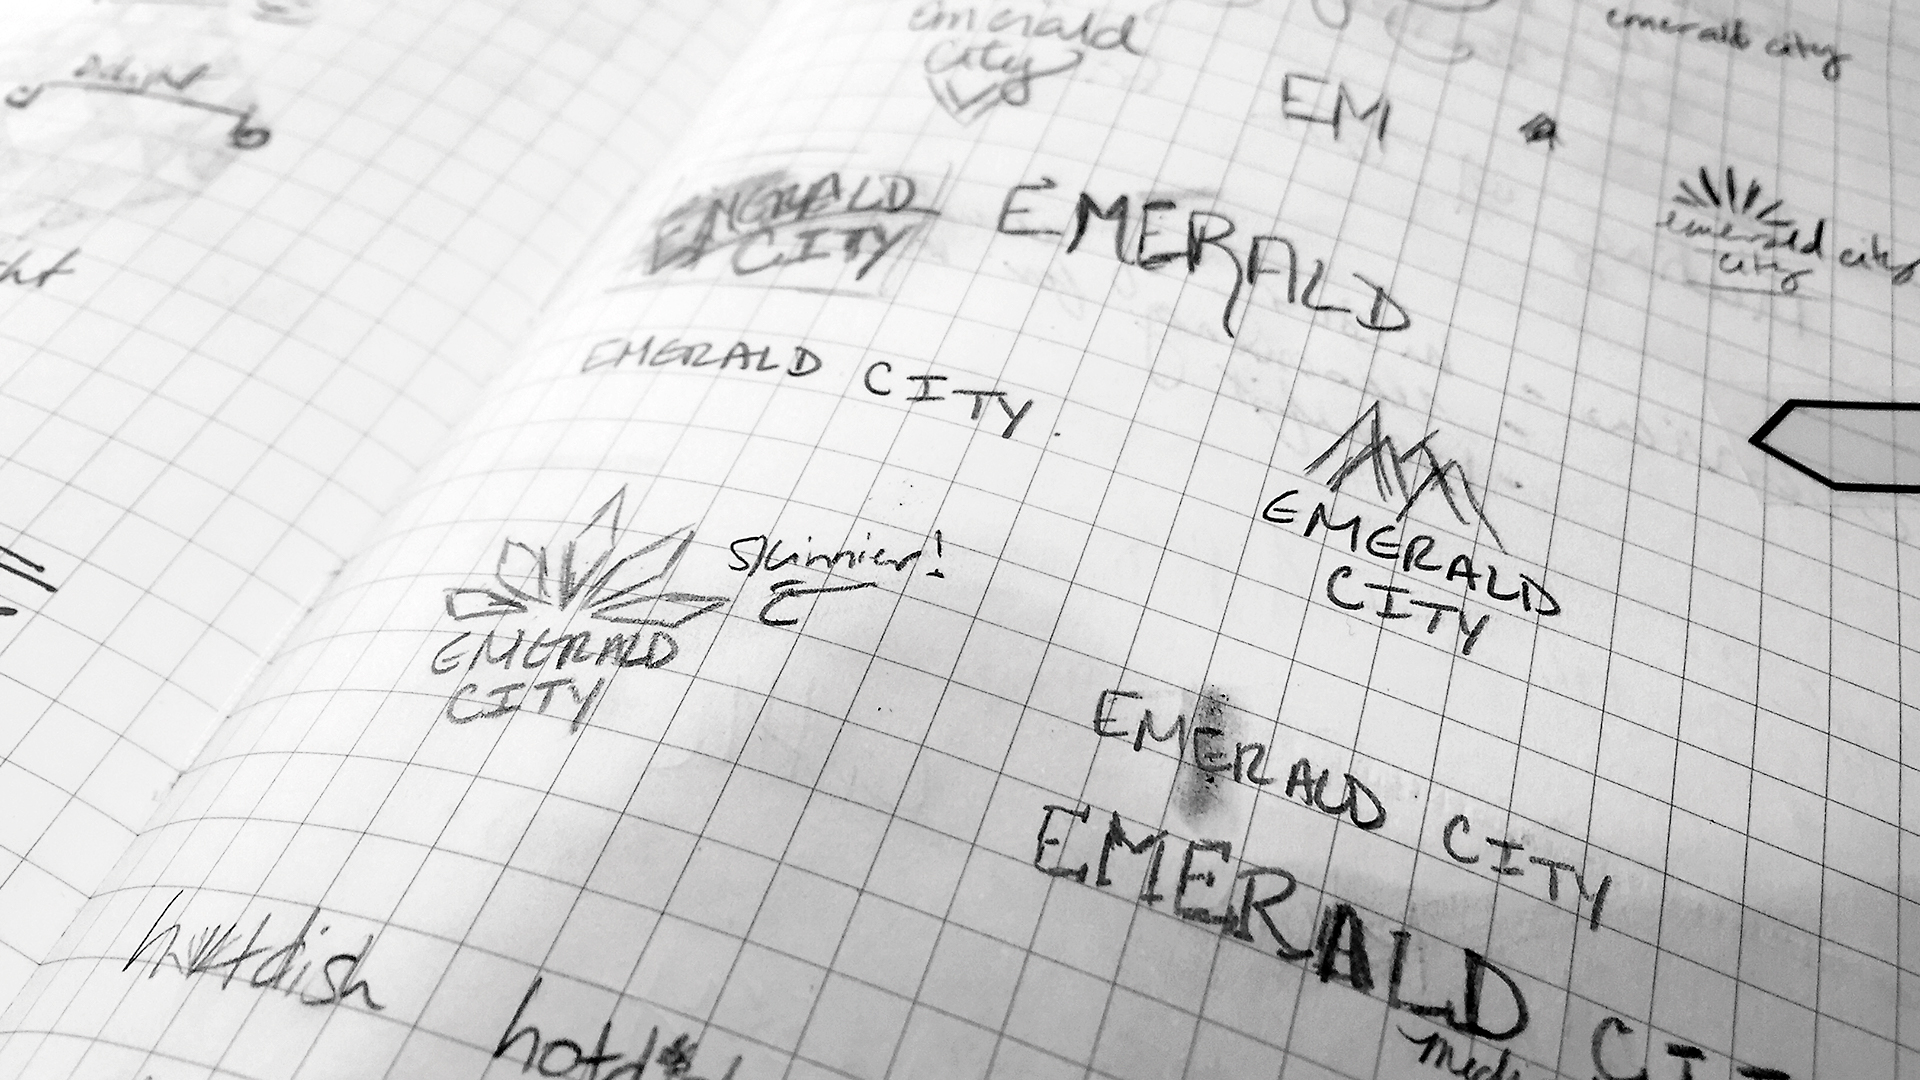 emerald
city
emerald city
EM
EMERALD
CITY
EMERALD
emerald city
city
EMERALD CITY.
EMERALD
CITY
Skinnier!
EMERALD
CITY
EMERALD CITY
EMERALD CI
hotdish